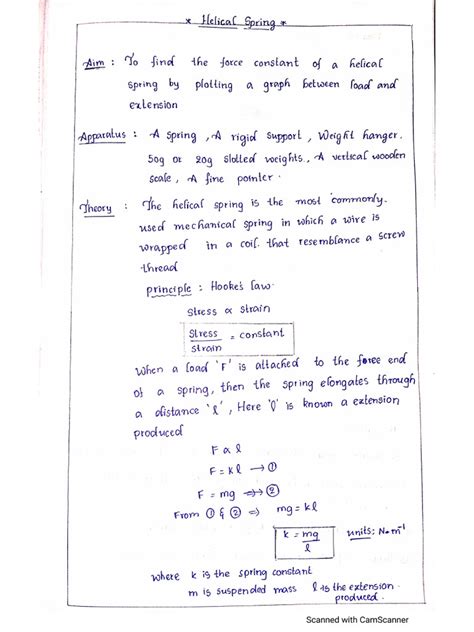 * Helical Spring *
Aim : To find the force constant of a helical
spring by plotting a graph between load and
extension
Apparatus : A spring , A rigid support , Weight hanger.
50g or 20g slotted weights , A vertical wooden
scale , A fine pointer .
Theory : The helical spring is the most commonly.
used mechanical spring in which a wire is
wrapped in a coil. that resemblance a screw
thread
principle : Hooke's law.
Stress ∝ strain
Stress / strain = constant
When a load 'F' is attached to the foree end
of a spring, then the spring elongates through
a distance 'l' , Here 'l' is known a extension
produced
F ∝ l
F = Kl → ①
F = mg ⇒ ②
From ① & ② ⇒ mg = kl
k = mg / l units: N-m⁻¹
where k is the spring constant
m is suspended mass l is the extension
produced .
Scanned with CamScanner